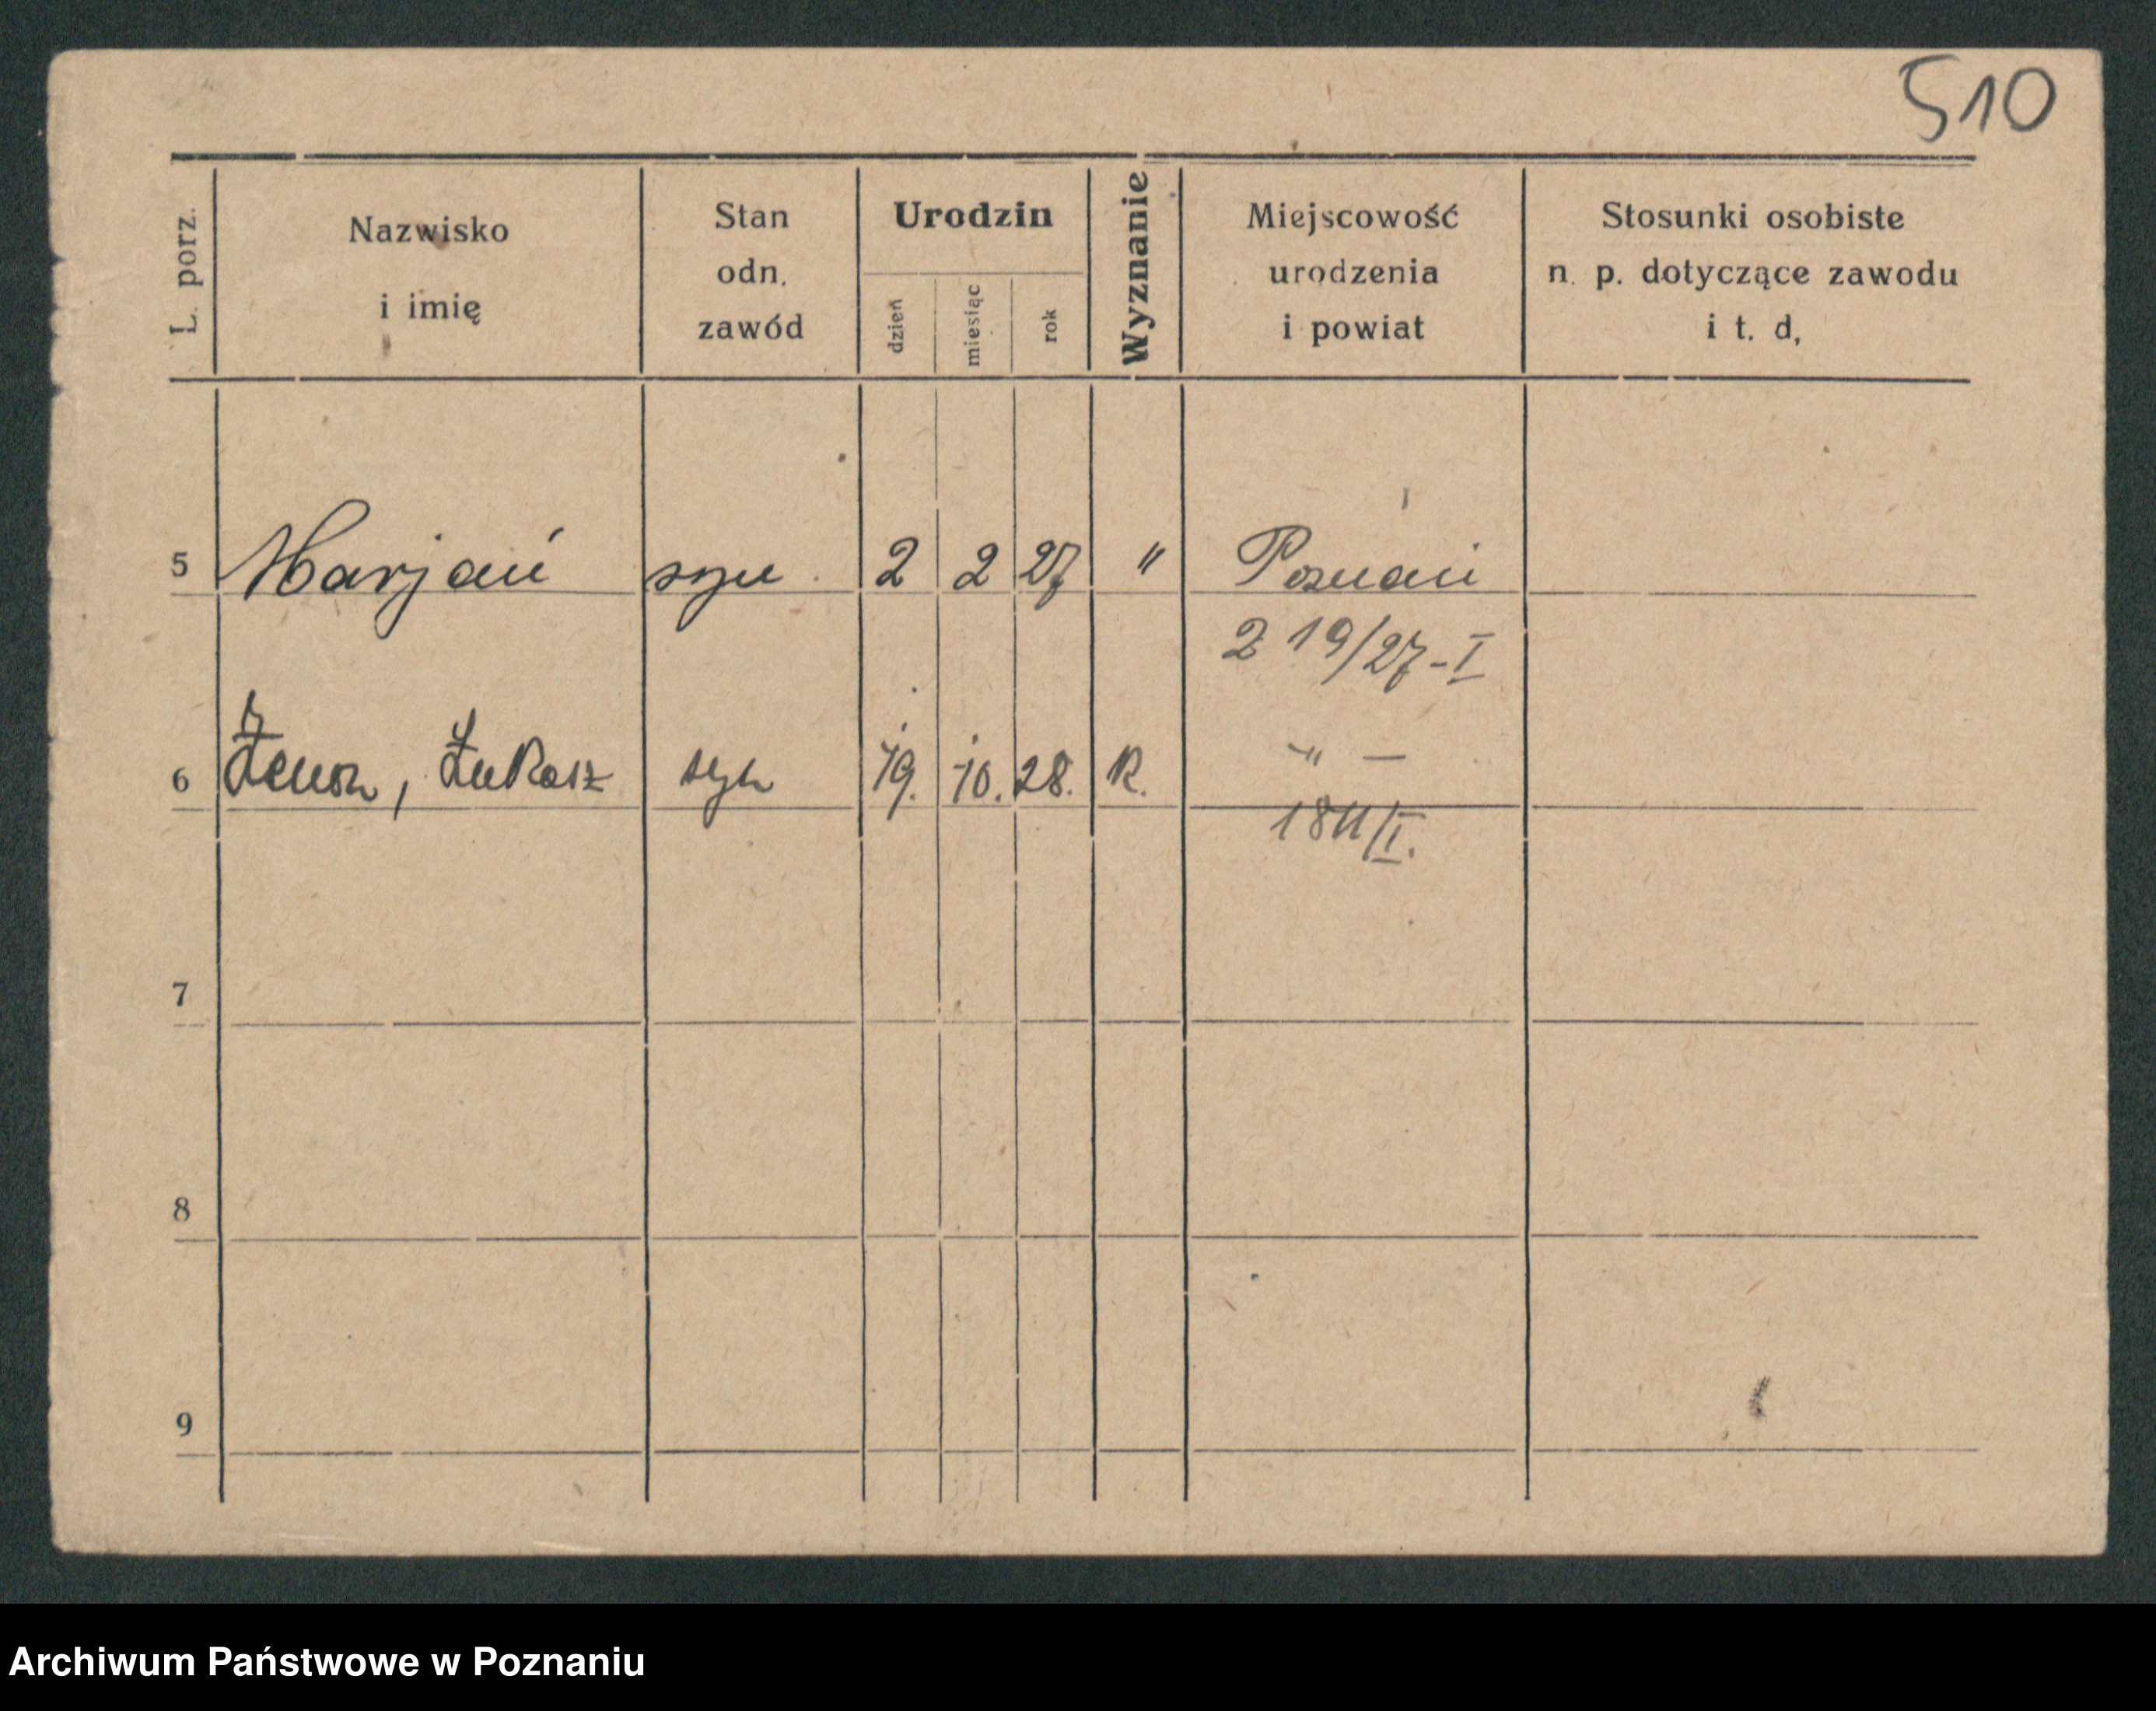 510
L. porz.
Nazwisko
i imię
Stan
odn.
zawód
Urodzin
dzień
miesiąc
rok
Wyznanie
Miejscowość
urodzenia
i powiat
Stosunki osobiste
n. p. dotyczące zawodu
i t. d,
5 Marjań syn 2 2 27 " Poznań
219/27-I
6 Zenon, Łukasz syn 19. 10. 28. R. -"-
1811/I.
7
8
9
Archiwum Państwowe w Poznaniu